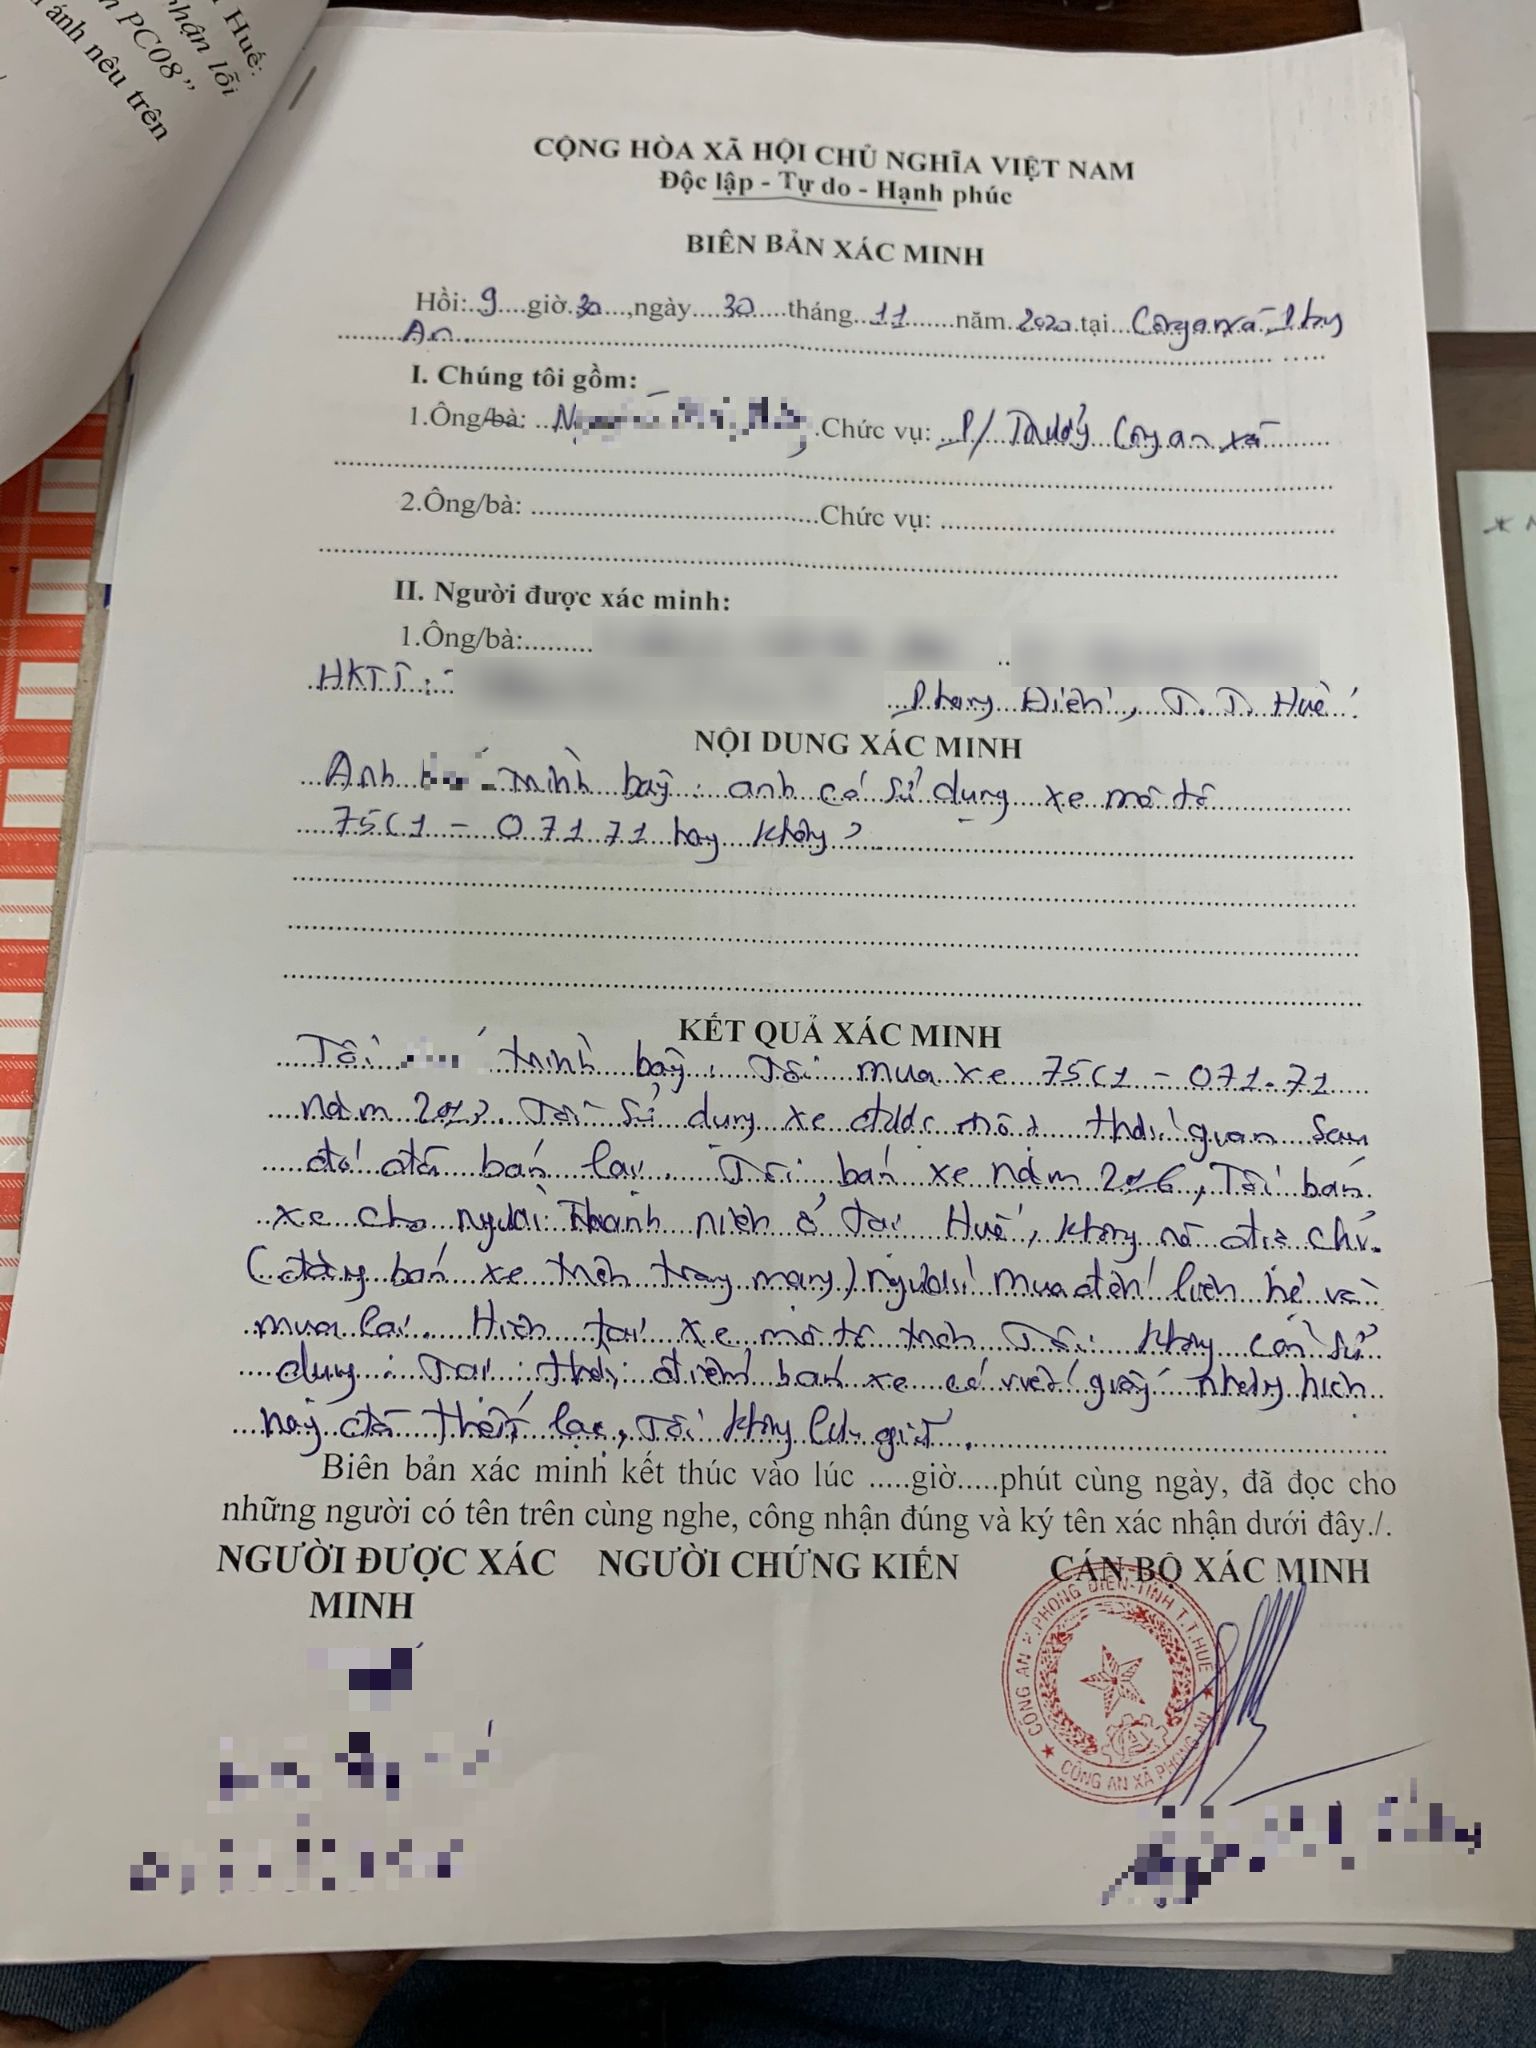 Huế:
nhận lỗi
PC08”
ánh nêu trên
CỘNG HÒA XÃ HỘI CHỦ NGHĨA VIỆT NAM
Độc lập - Tự do - Hạnh phúc
BIÊN BẢN XÁC MINH
Hồi: 9 giờ 30, ngày 30 tháng 11 năm 2020 tại Công an xã Phong
An.
I. Chúng tôi gồm:
1.Ông/bà: Chức vụ: P/ Trưởng Công an xã
2.Ông/bà: Chức vụ:
II. Người được xác minh:
1.Ông/bà:
HKTT: Phong Điền, T.T. Huế.
NỘI DUNG XÁC MINH
Anh trình bày: anh có sử dụng xe mô tô
75C1 - 071.71 hay không?
KẾT QUẢ XÁC MINH
Tôi trình bày: Tôi mua xe 75C1 - 071.71
năm 2013. Tôi sử dụng xe được một thời gian sau
đó đã bán lại. Tôi bán xe năm 2016, Tôi bán
xe cho người Thanh niên ở tại Huế, không rõ địa chỉ.
(đăng bán xe trên trang mạng) người mua đến liên hệ và
mua lại. Hiện tại xe mô tô trên Tôi không còn sử
dụng. Tại thời điểm bán xe có viết giấy nhưng hiện
nay đã thất lạc, Tôi không lưu giữ.
Biên bản xác minh kết thúc vào lúc .....giờ.....phút cùng ngày, đã đọc cho
những người có tên trên cùng nghe, công nhận đúng và ký tên xác nhận dưới đây./.
NGƯỜI ĐƯỢC XÁC NGƯỜI CHỨNG KIẾN CÁN BỘ XÁC MINH
MINH
CÔNG AN H.PHONG ĐIỀN-TỈNH T.T.HUẾ
CÔNG AN XÃ PHONG AN